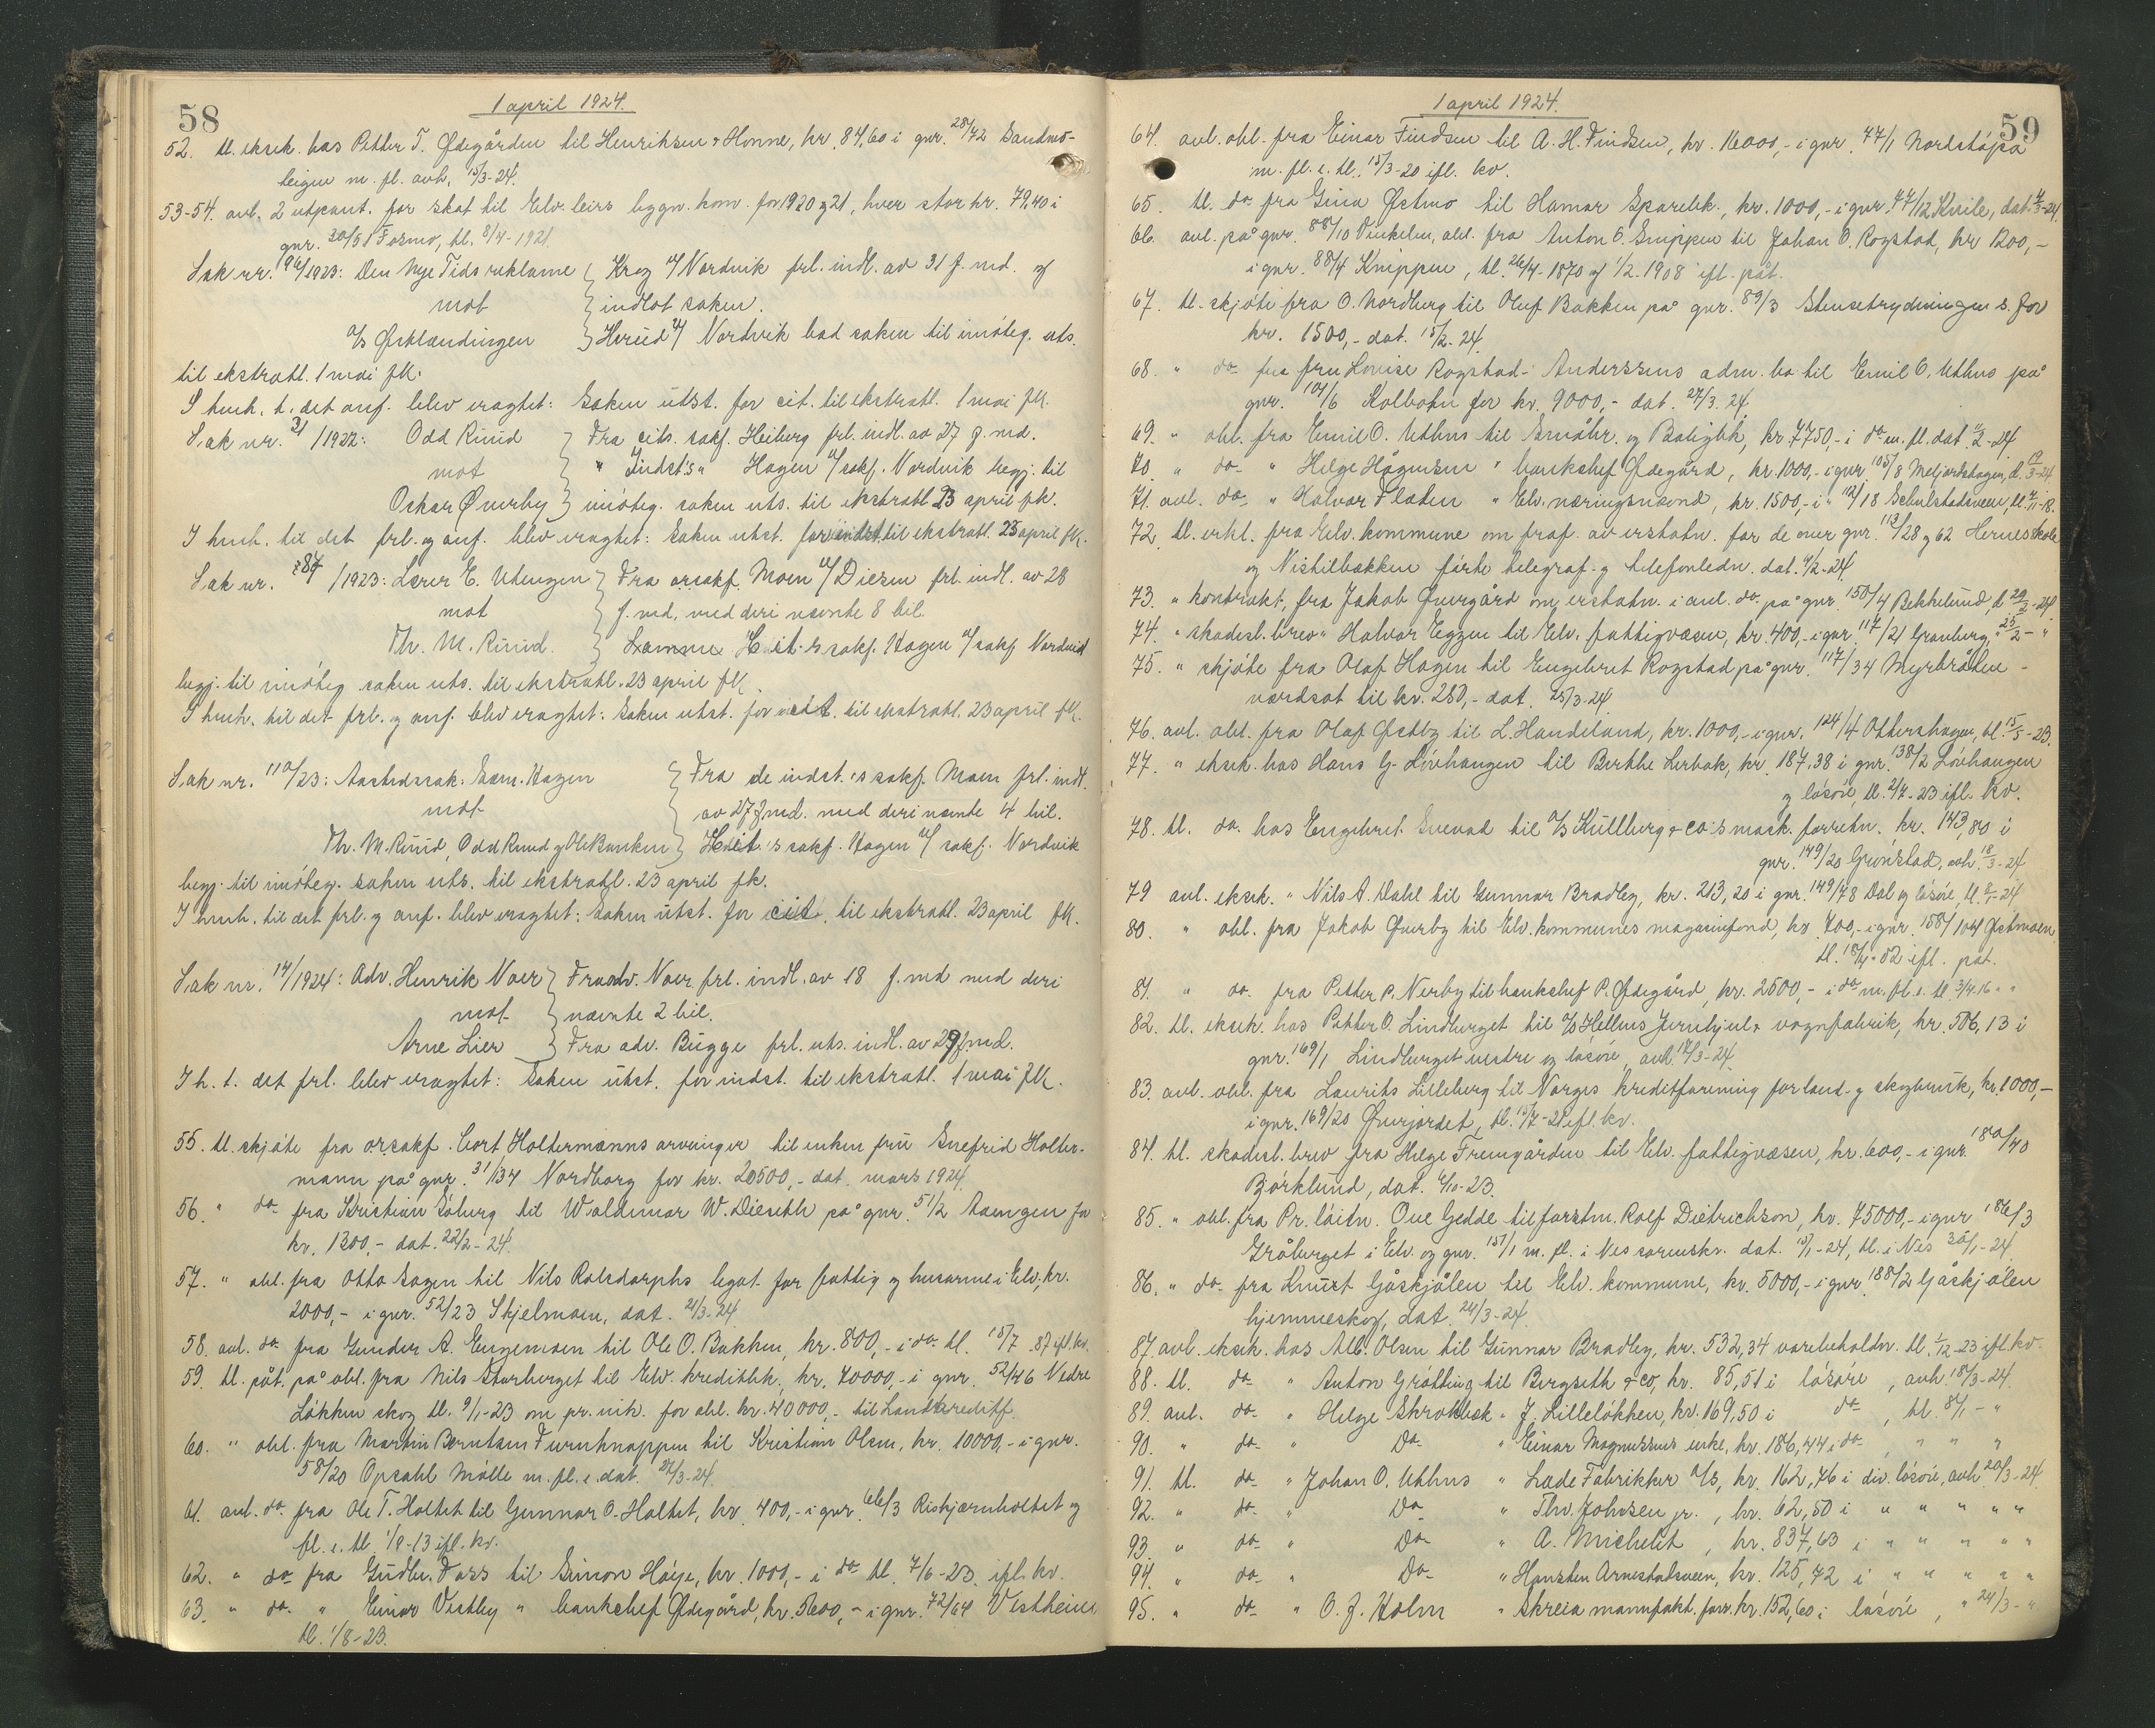 58
1 april 1924.
52. tl. eksek. hos Petter T. Ødegården til Henriksen & Honne, kr. 84,60 i gnr. 28/42 Sandmo-
teigen m. fl. avh. 15/3-24.
53-54. avl. 2 utpant. for skat til Elv. leirs bygn. kom. for 1920 og 21, hver stor kr. 79,40 i
gnr. 30/51 Formo, tl. 8/4-1921.
Sak nr. 96/1923: Den Nye Tids reklame } Krog v/ Nordvik frl. indl. av 31 f. md. og
mot } indlot saken.
A/S Østlændingen } Herud v/ Nordvik bad saken til imøteg. uts.
til ekstratl. 1 mai fk.
I henh. t. det anf. blev eragtet: Saken utst. for cit. til ekstratl. 1 mai fk.
Sak nr. 31/1922: Odd Ruud } Fra cits. sakf. Heiberg frl. indl. av 27 f. md.
mot } " Indst's " Hagen v/ sakf. Nordvik begj. til
Oskar Øverby } imøteg. saken uts. til ekstratl. 23 april fk.
I henh. til det frl. og anf. blev eragtet: Saken utst. for indst. til ekstratl. 23 april fk.
Sak nr. 84/1923: Lærer E. Utengen } Fra orsakf. Moen v/ Diesen frl. indl. av 28
mot } f. md. med deri nævnte 8 bil.
Th. M. Ruud. } cit.'s sakf. Hagen v/ sakf. Nordvik
begj. til imøteg. saken uts. til ekstratl. 23 april fk.
I henh. til det frl. og anf. blev eragtet: Saken utst. for cit. til ekstratl. 23 april fk.
Sak nr. 110/23: Aastedssak: Sam. Hagen } Fra de indst.'s sakf. Moen frl. indl.
mot } av 27 f. md. med deri nævnte 4 bil.
Th. M. Ruud, Odd Ruud og Ole Banken } cit.'s sakf. Hagen v/ sakf. Nordvik
begj. til imøteg. saken uts. til ekstratl. 23 april fk.
I henh. til det frl. og anf. blev eragtet: Saken utst. for cit. til ekstratl. 23 april fk.
Sak nr. 14/1924: Adv. Henrik Naer } Fra adv. Naer frl. indl. av 18 f. md med deri
mot } nævnte 2 bil.
Arne Lier } Fra adv. Bugge frl. uts. indl. av 29 f. md.
I h. t. det frl. blev eragtet: Saken utst. for indst. til ekstratl. 1 mai fk.
55. tl. skjøte fra orsakf. Cort Holtermanns arvinger til enken fru Snefrid Holter-
mann på gnr. 31/34 Nordborg for kr. 20500,- dat. mars 1924.
56. " do fra Kristian Søberg til Waldemar W. Dieseth på gnr. 51/2 Aamgen for
kr. 1300,- dat. 22/2-24.
57. " obl. fra Otto Sagen til Nils Rolsdorphs legat for fattig og husarme i Elv., kr.
2000,- i gnr. 52/23 Skjelmoen, dat. 21/3-24.
58. avl. do fra Gunder A. Engemoen til Ole O. Bakken, kr. 800,- i do tl. 15/7 87 ifl. kv.
59. tl. påt. på obl. fra Nils Storberget til Elv. kreditbk., kr. 70000,- i gnr. 52/46 Nedre
Løkken skog tl. 9/1-23 om pr. vik. for obl. kr. 40000,- til Landkreditf.
60. " obl. fra Martin Berntsen Furuknappen til Kristian Olsen, kr. 10000,- i gnr.
58/20 Opsahl Mølle m. fl. e. dat. 27/3-24.
61. avl. do fra Ole T. Holtet til Gunnar O. Holtet, kr. 400,- i gnr. 66/3 Riskjærnholtet og
fl. e. tl. 1/9-13 ifl. kv.
62. " do fra Gudbr. Foss til Simon Høije, kr. 1000,- i do tl. 7/6-23. ifl. kv.
63. " do " Einar Vestby " banksjef Ødegård, kr. 5600,- i gnr. 72/64 Vestheim
tl. 1/8-23.
59
1 april 1924.
64. avl. obl. fra Einar Findsen til A. H. Findsen, kr. 16000,- i gnr. 77/1
m. fl. e. tl. 15/3-20 ifl. kv.
65. tl. do fra Gina Østmo til Hamar Sparebk., kr. 1000,- i gnr. 77/12 Kirile, dat. -24.
66. avl. på gnr. 88/10 Vinkelen, obl. fra Anton O. Snippen til Johan O. Rogstad, kr 1200,-
i gnr. 88/4 Knippen, tl. 26/4-1870 og 1/2-1908 ifl. påt.
67. tl. skjøte fra O. Nordberg til Oluf Bakken på gnr. 89/3 Stensetrydningen s. for
kr. 1500,- dat. 15/2-24.
68. " do fra fru Lovise Rogstad-Anderssens adm. bo til Emil O. Uthus på
gnr. 104/6 Kolbotn for kr. 9000,- dat. 27/3-24.
69. " obl. fra Emil O. Uthus til Småbr. og Boligbk, kr. 7750,- i do m. fl. dat. -24.
70. " do " Helge Hågensen " banksjef Ødegård, kr. 1000,- i gnr. 105/8 Meljordshagen, d. 19/3-24
71. avl. do " Halvor Fladen " Elv. næringsnævnd, kr. 1500,- i " 112/18 , tl. -18.
72. tl. erkl. fra Elv. kommune om fraf. av erstatn. for de over gnr. 113/28 og 62 Hernes skole
og Nistilbakken førte telegraf- og telefonledn. dat. -24.
73. " kontrakt, fra Jakob Øvergård om erstatn. i anl. do på gnr. 150/4 Bekkelund, d. 29/2-24.
74. " skadesl. brev " Halvor Eggen til Elv. fattigvæsen, kr. 400,- i gnr. 117/21 Granberg, " 25/2- "
75. " skjøte fra Olaf Hagen til Engebret Rogstad på gnr. 117/34 Myrbråten -
værdsat til kr. 280,- dat. 25/3-24.
76. avl. obl. fra Olaf Østby til L. Handeland, kr. 1000,- i gnr. 124/4 Ottershagen, tl. 15/5-23.
77. " eksek. hos Hans G. Løvhaugen til Berthe Lerbak, kr. 187,38 i gnr. 138/2 Løvhaugen
og løsøre, tl. 2/7-23 ifl. kv.
78. tl. do. hos Engebret Svenad til A/S Kullberg & Co's mask. forretn. kr. 143,80 i
gnr. 149/20 Grønstad, avh. 18/3-24.
79 avl. eksek. " Nils A. Dahl til Gunnar Bradley, kr. 213,20 i gnr. 149/78 Dal og løsøre, tl. -24.
80. " obl. fra Jakob Øverby til Elv. kommunes magasinfond, kr. 700,- i gnr. 158/104 Østmoen
tl. 18/4-02 ifl. påt.
81. " do. fra Petter P. Nerby til banksjef P. Ødegård, kr. 2500,- i do m. fl. e. tl. 3/4.16 " "
82. tl. eksek. hos Petter O. Lindberget til A/S Hellums Jernhjul & vognfabrik, kr. 506,13 i
gnr. 169/1 Lindberget vestre og løsøre, avh. 18/3-24.
83. avl. obl. fra Laurits Lilleberg til Norges Kreditforening for land- og skogbruk, kr. 1000,-
i gnr. 169/20 Øverjordet, tl. 15/7-21 ifl. kv.
84. tl. skadesl. brev fra Helge Fremgården til Elv. fattigvæsen, kr. 600,- i gnr. 180/40
Bjørklund, dat. 6/10-23.
85. " obl. fra Pr. løitn. Ove Gedde til forstm. Rolf Dietrichson, kr. 75000,- i gnr 186/3
Gråberget i Elv. og gnr. 157/1 m. fl. i Nes sorenskr. dat. 15/1-24, tl. i Nes 30/1-24.
86. " do fra Knut Gåskjølen til Elv. kommune, kr. 5000,- i gnr. 188/2 Gåskjølen
hjemmeskog, dat. 24/3-24.
87 avl. eksek. hos Alb. Olsen til Gunnar Bradley, kr. 532,34 varebeholdn. tl. 1/12-23 ifl. kv.
88. tl. do " Anton Grøtting til Bergseth & Co, kr. 85,51 i løsøre, avh. 18/3-24.
89. avl. do " Helge Skrokbek " J. Lilleløkken, kr. 169,50 i do , tl. 8/1- "
90. " do " Do " Einar Magnussens enke, kr. 186,44 i do , " " "
91. tl. do " Johan O. Uthus " Lade Fabrikker A/S, kr. 162,76 i div. løsøre, avh 20/3-24.
92. " do " Do " Thv. Johnsen jr., kr. 62,50 i " " " " "
93. " do " Do " A. Michelet, kr. 837,63 i " " " " "
94. " do " Do " Arnestadsveen, kr. 125,72 i " " " " "
95. " do " O. J. Holm " Skreia manufakt. forr. kr. 152,60 i løsøre, " 24/3- "